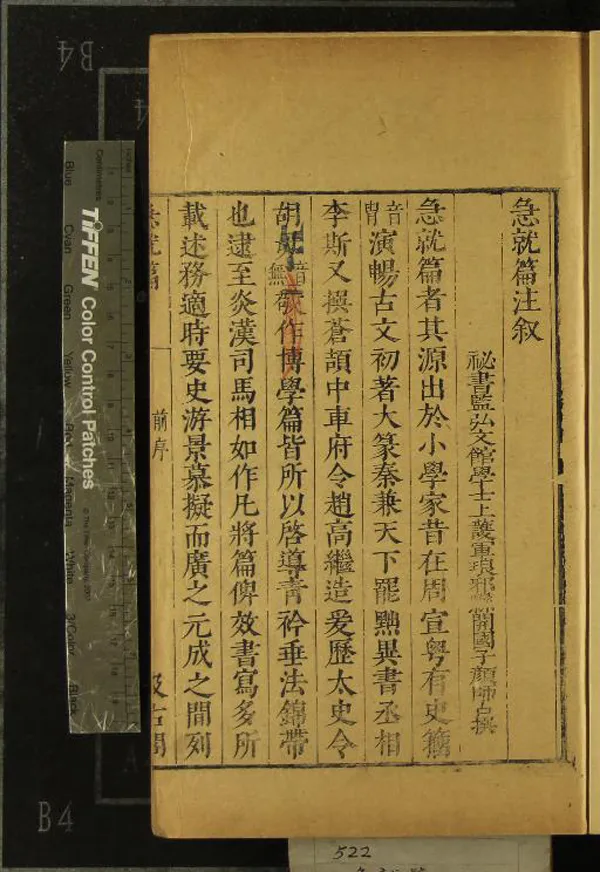 急就篇注叙
祕書監弘文館學士上護軍琅邪縣開國子顔師古撰
急就篇者其源出於小學家昔在周宣粤有史籒
音胄演暢古文初著大篆秦兼天下罷黜異書丞相
李斯又撰蒼頡中車府令趙高繼造爰歷太史令
胡母音無敬作博學篇皆所以啓導青衿垂法錦帶
也逮至炎漢司馬相如作凡將篇俾效書寫多所
載述務適時要史游景慕擬而廣之元成之間列
急就篇 前序 汲古閣
TIFFEN Color Control Patches
Blue Cyan Green Yellow Red Magenta White 3/Color Black
Centimetres
Inches
B4
B4
522